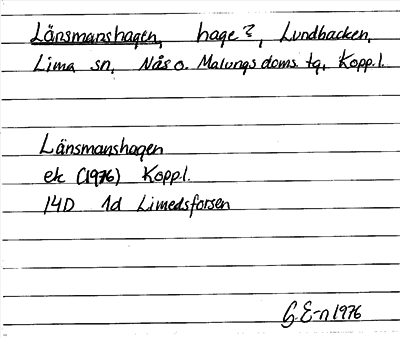 Länsmanshagen, hage?, Lundbacken,
Lima sn, Nås o. Malungs doms. tg, Kopp.l.
Länsmanshagen
ek (1976) Kopp.l.
14D 1d Limedsforsen
G.E-n 1976